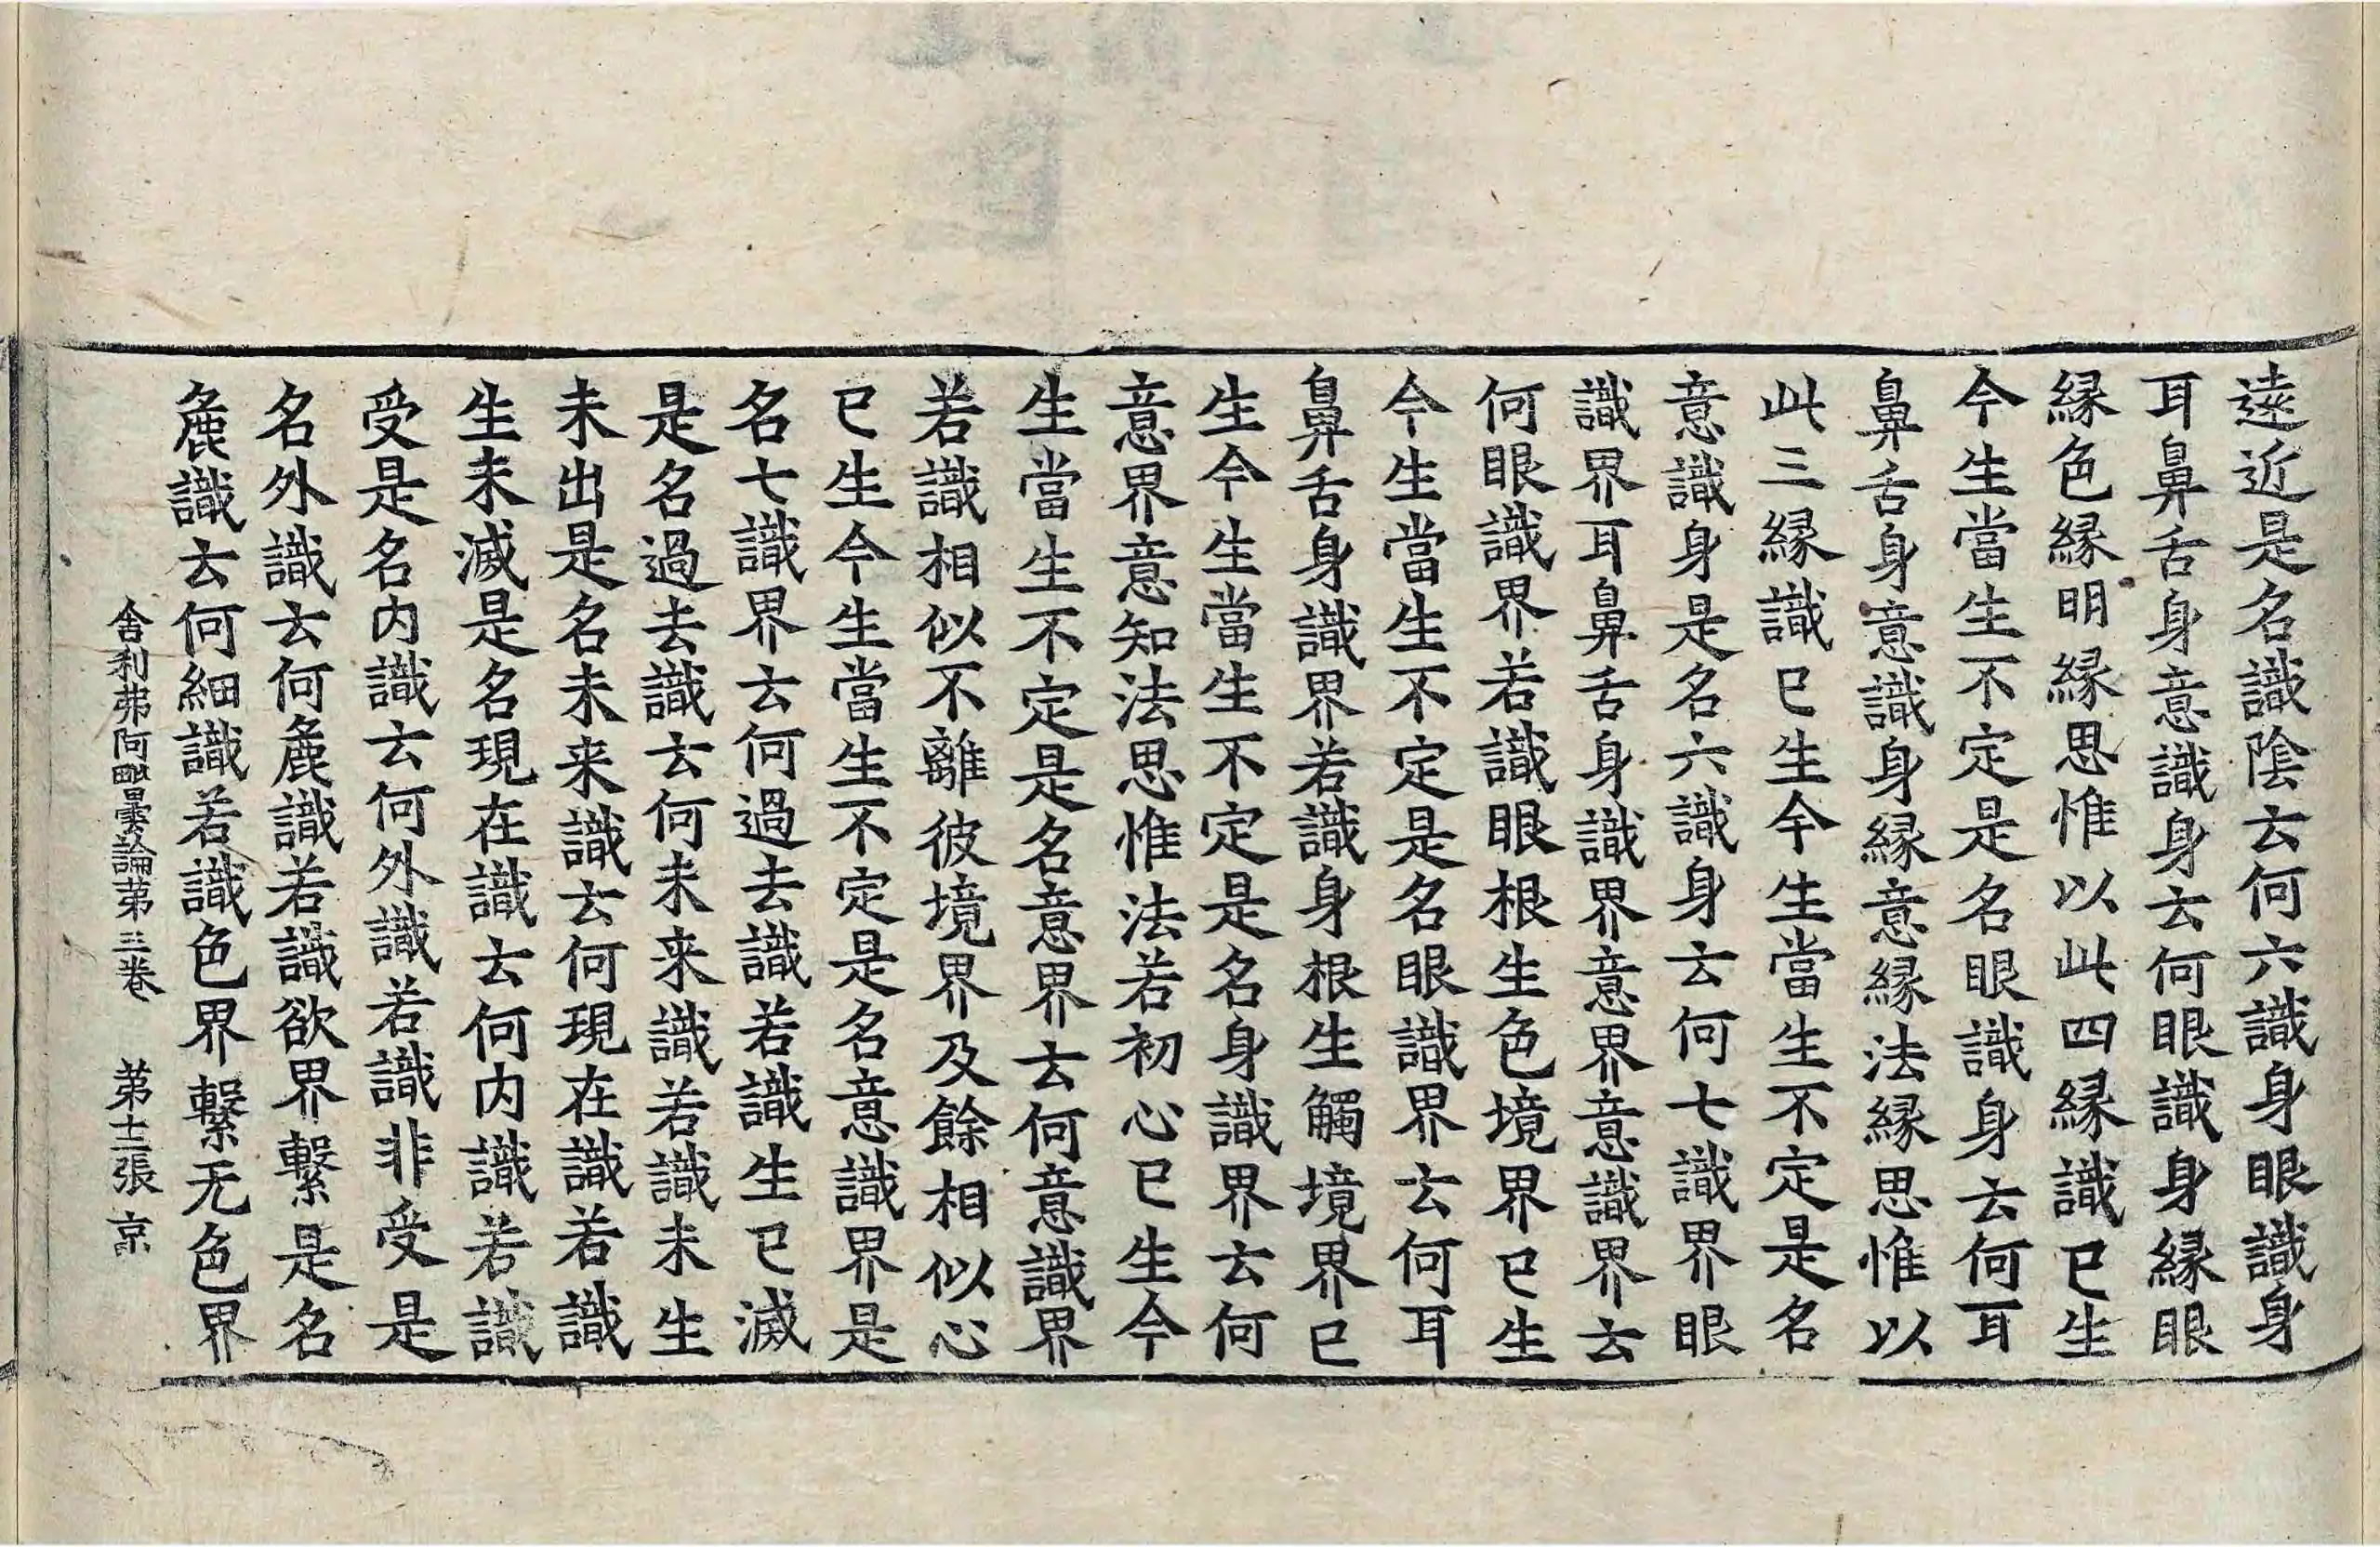 遠近是名識陰云何六識身眼識身
耳鼻舌身意識身云何眼識身緣眼
緣色緣明緣思惟以此四緣識已生
今生當生不定是名眼識身云何耳
鼻舌身意識身緣意緣法緣思惟以
此三緣識已生今生當生不定是名
意識身是名六識身云何七識界眼
識界耳鼻舌身識界意界意識界云
何眼識界若識眼根生色境界已生
今生當生不定是名眼識界云何耳
鼻舌身識界若識身根生觸境界已
生今生當生不定是名身識界云何
意界意知法思惟法若初心已生今
生當生不定是名意界云何意識界
若識相似不離彼境界及餘相似心
已生今生當生不定是名意識界是
名七識界云何過去識若識生已滅
是名過去識云何未来識若識未生
未出是名未来識云何現在識若識
生未滅是名現在識云何内識若識
受是名内識云何外識若識非受是
名外識云何麁識若識欲界繫是名
麁識云何細識若識色界繫无色界
舍利弗阿毗曇論第三卷 第十二張 京